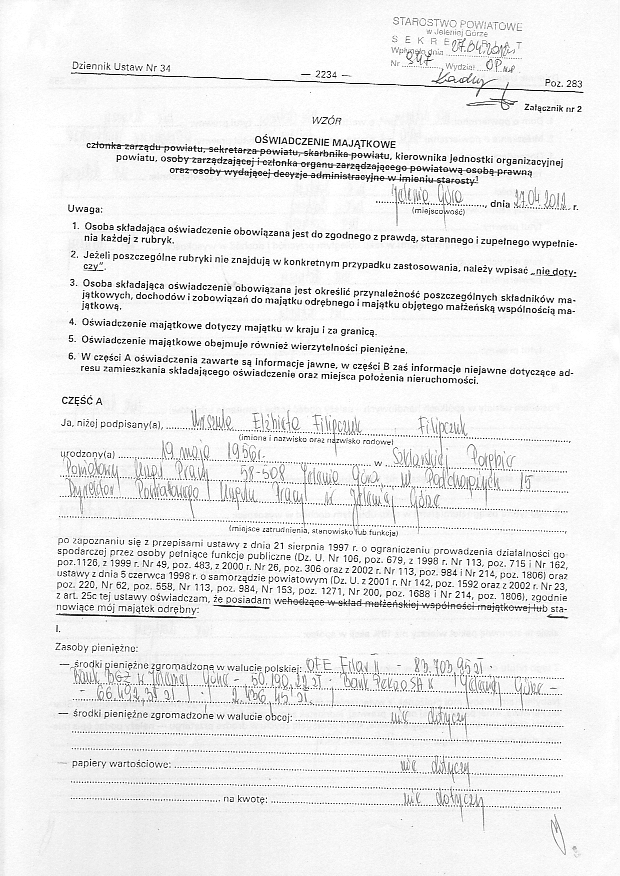 STAROSTWO POWIATOWE
w Jeleniej Górze
SEKRE T
Wpłynęło dnia 27.04.2012
Nr 247 Wydział OP
Kadry
Dziennik Ustaw Nr 34 — 2234 — Poz. 283
Załącznik nr 2
WZÓR
OŚWIADCZENIE MAJĄTKOWE
członka zarządu powiatu, sekretarza powiatu, skarbnika powiatu, kierownika jednostki organizacyjnej
powiatu, osoby zarządzającej i członka organu zarządzającego powiatową osobą prawną
oraz osoby wydającej decyzje administracyjne w imieniu starosty1
Jelenia Góra, dnia 27.04.2012 r.
(miejscowość)
Uwaga:
1. Osoba składająca oświadczenie obowiązana jest do zgodnego z prawdą, starannego i zupełnego wypełnie-
nia każdej z rubryk.
2. Jeżeli poszczególne rubryki nie znajdują w konkretnym przypadku zastosowania, należy wpisać „nie doty-
czy”.
3. Osoba składająca oświadczenie obowiązana jest określić przynależność poszczególnych składników ma-
jątkowych, dochodów i zobowiązań do majątku odrębnego i majątku objętego małżeńską wspólnością ma-
jątkową.
4. Oświadczenie majątkowe dotyczy majątku w kraju i za granicą.
5. Oświadczenie majątkowe obejmuje również wierzytelności pieniężne.
6. W części A oświadczenia zawarte są informacje jawne, w części B zaś informacje niejawne dotyczące ad-
resu zamieszkania składającego oświadczenie oraz miejsca położenia nieruchomości.
CZĘŚĆ A
Ja, niżej podpisany(a), Urszula Elżbieta Filipczuk Filipczuk
(imiona i nazwisko oraz nazwisko rodowe)
urodzony(a) 19 maja 1956r. w Szklarskiej Porębie
Powiatowy Urząd Pracy 58-508 Jelenia Góra, ul. Podchorążych 15
Dyrektor Powiatowego Urzędu Pracy w Jeleniej Górze
(miejsce zatrudnienia, stanowisko lub funkcja)
po zapoznaniu się z przepisami ustawy z dnia 21 sierpnia 1997 r. o ograniczeniu prowadzenia działalności go-
spodarczej przez osoby pełniące funkcje publiczne (Dz. U. Nr 106, poz. 679, z 1998 r. Nr 113, poz. 715 i Nr 162,
poz.1126, z 1999 r. Nr 49, poz. 483, z 2000 r. Nr 26, poz. 306 oraz z 2002 r. Nr 113, poz. 984 i Nr 214, poz. 1806) oraz
ustawy z dnia 5 czerwca 1998 r. o samorządzie powiatowym (Dz. U. z 2001 r. Nr 142, poz. 1592 oraz z 2002 r. Nr 23,
poz. 220, Nr 62, poz. 558, Nr 113, poz. 984, Nr 153, poz. 1271, Nr 200, poz. 1688 i Nr 214, poz. 1806), zgodnie
z art. 25c tej ustawy oświadczam, że posiadam wchodzące w skład małżeńskiej wspólności majątkowej lub sta-
nowiące mój majątek odrębny:
I.
Zasoby pieniężne:
— środki pieniężne zgromadzone w walucie polskiej: OFE - 83.703,95 zł.
Bank BGŻ w Jeleniej Górze - 50.190,22 zł. Bank Pekao SA w Jeleniej Górze -
- 66.492,38 zł 2.436,45 zł.
— środki pieniężne zgromadzone w walucie obcej: nie dotyczy
— papiery wartościowe: nie dotyczy
na kwotę: nie dotyczy